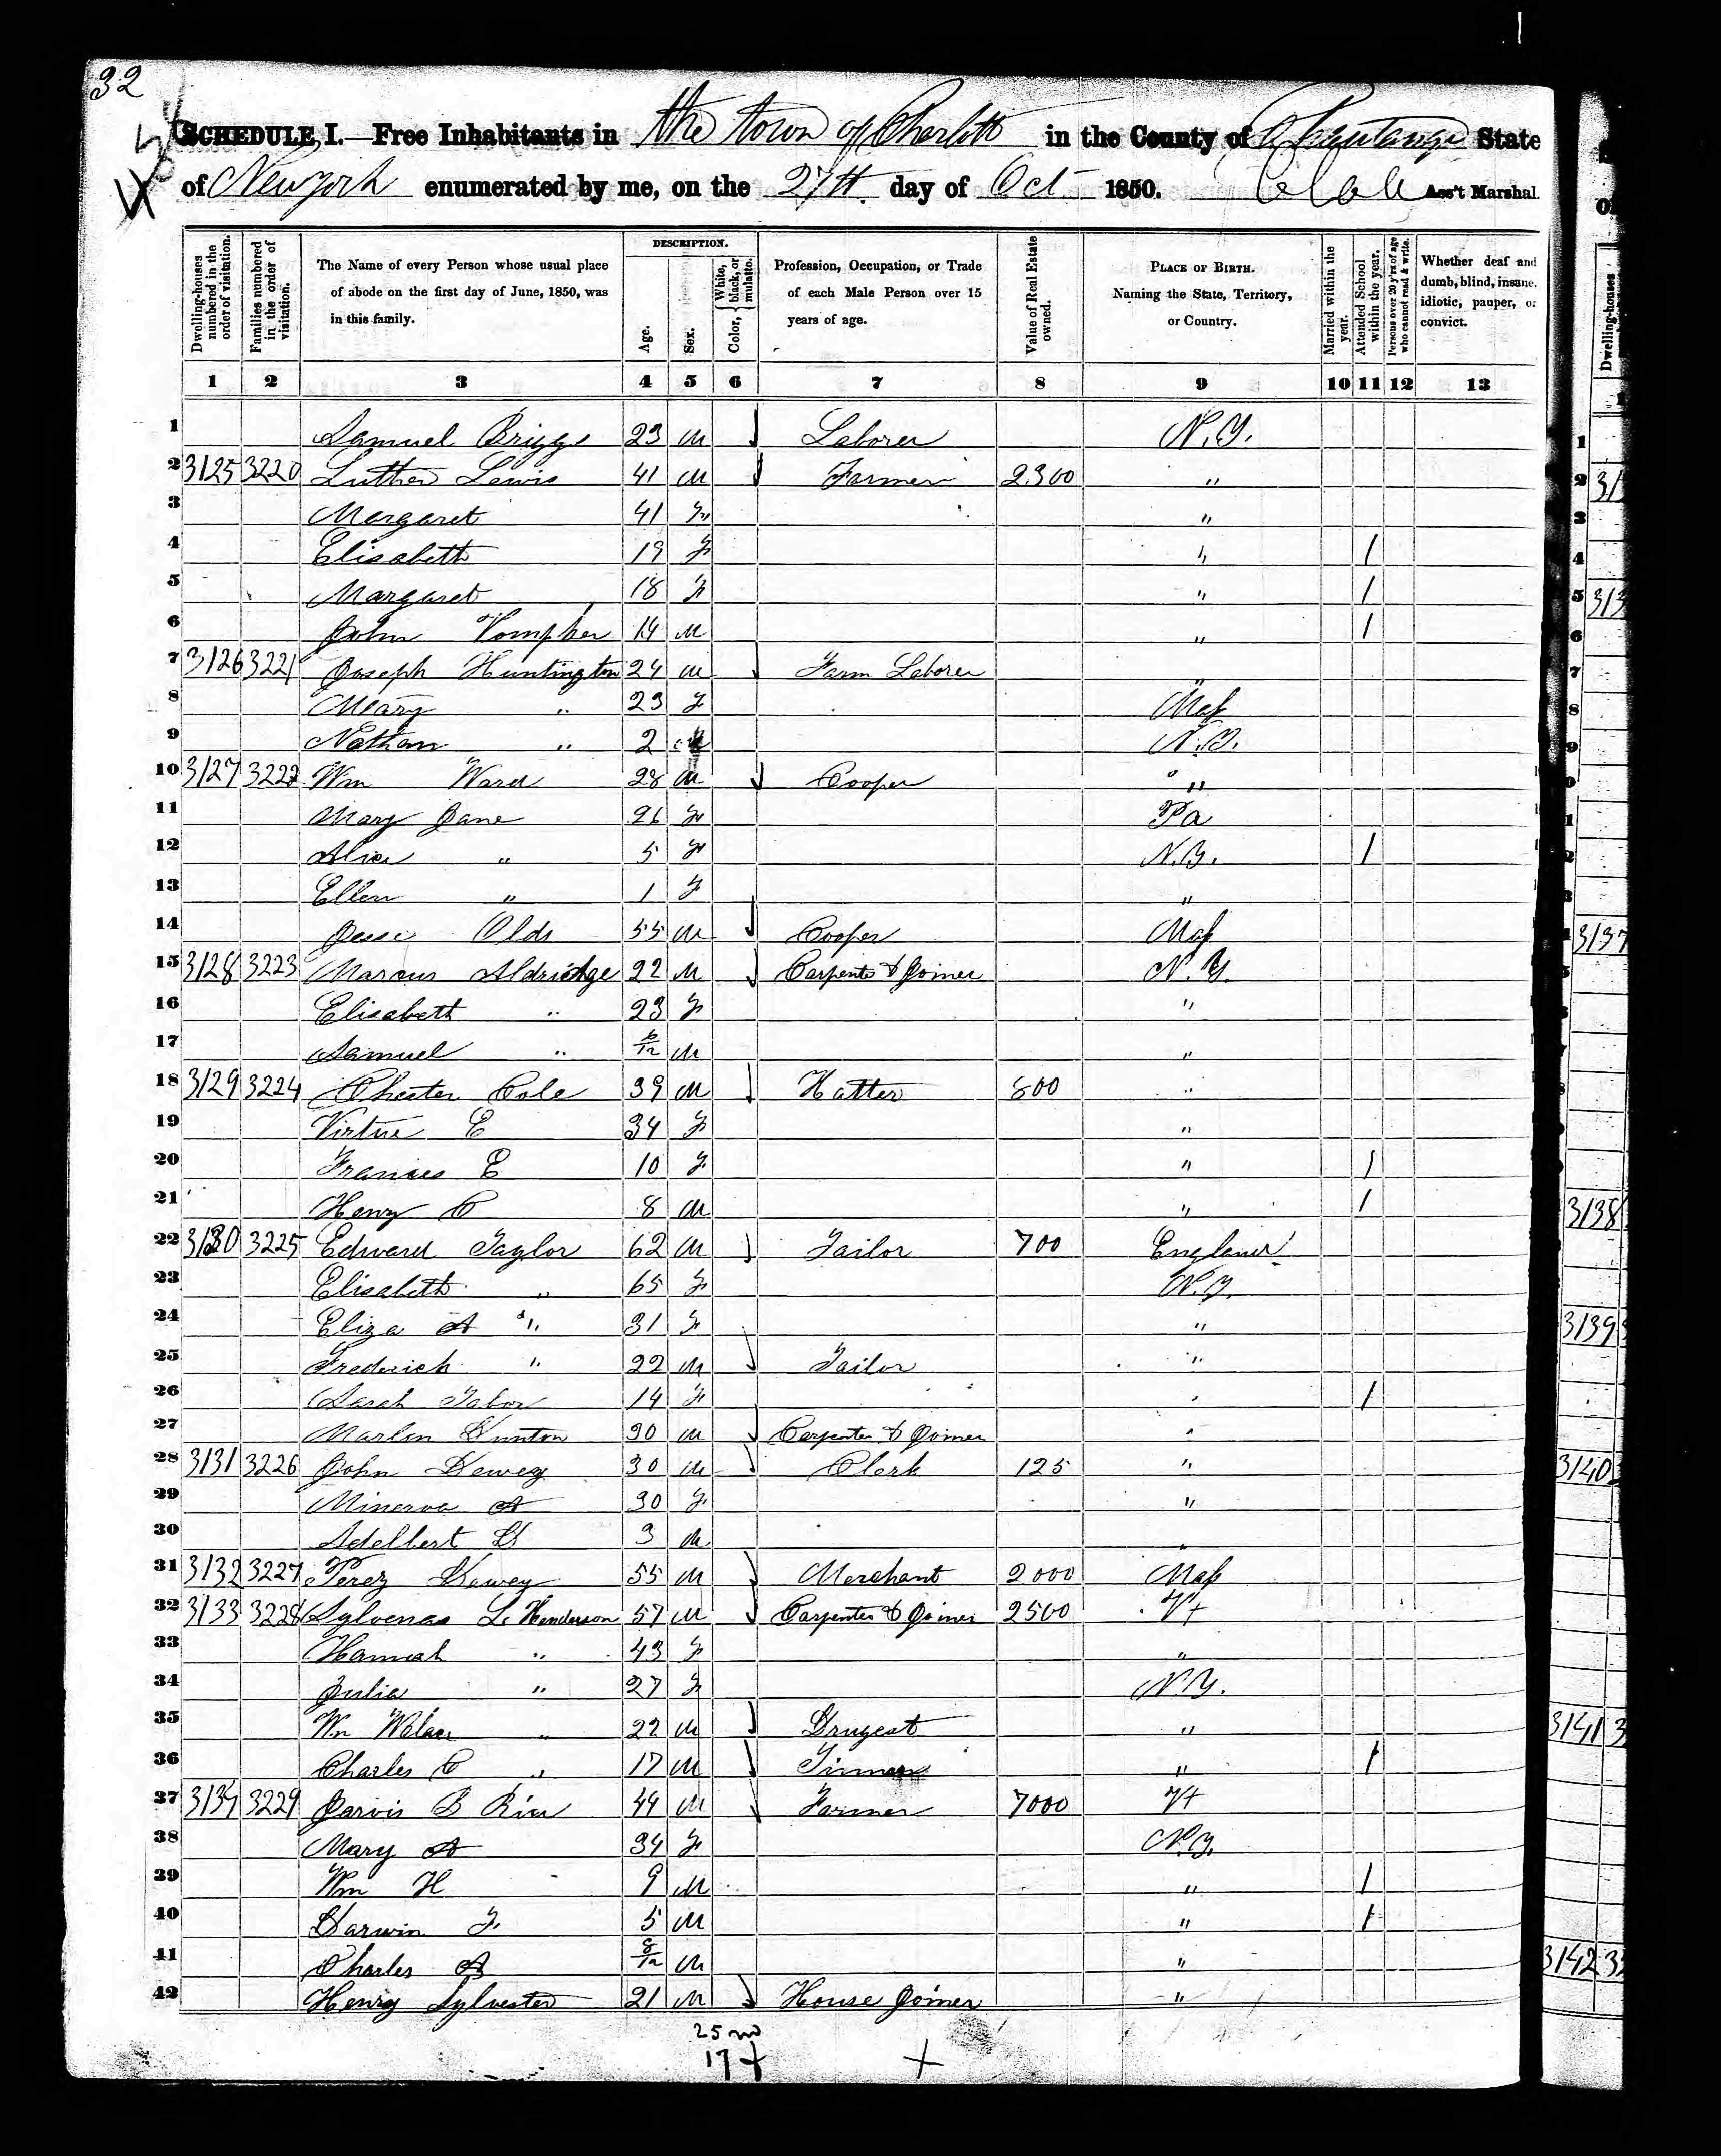 32
SCHEDULE I.—Free Inhabitants in the town of Charlott in the County of Chautauqua State
of New York enumerated by me, on the 27th day of Oct 1850. Ass't Marshal.
Dwelling-houses numbered in the order of visitation.
Families numbered in the order of visitation.
The Name of every Person whose usual place of abode on the first day of June, 1850, was in this family.
DESCRIPTION.
Age.
Sex.
Color, White, black, or mulatto.
Profession, Occupation, or Trade of each Male Person over 15 years of age.
Value of Real Estate owned.
PLACE OF BIRTH. Naming the State, Territory, or Country.
Married within the year.
Attended School within the year.
Persons over 20 y'rs of age who cannot read & write.
Whether deaf and dumb, blind, insane, idiotic, pauper, or convict.
1 2 3 4 5 6 7 8 9 10 11 12 13
1 Samuel Briggs 23 M Laborer N.Y.
2 3125 3220 Luther Lewis 41 M Farmer 2300 "
3 Margaret 41 F "
4 Elisabeth 19 F " /
5 Margaret 18 F " /
6 John 14 M " /
7 3126 3221 Joseph Huntington 24 M Farm Laborer "
8 Mary " 23 F Mass
9 Nathan " 2 M N.Y.
10 3127 3222 Wm Ward 28 M Cooper "
11 Mary Jane 26 F Pa
12 Alice " 5 F N.Y. /
13 Ellen " 1 F "
14 Jesse Olds 55 M Cooper Mass
15 3128 3223 Marcus Aldridge 22 M Carpenter & Joiner N.Y.
16 Elisabeth " 23 F "
17 Samuel " 6/12 M "
18 3129 3224 Chester Cole 39 M Hatter 800 "
19 Virtue E 34 F "
20 Frances E 10 F " /
21 Henry C 8 M " /
22 3130 3225 Edward Taylor 62 M Tailor 700 England
23 Elisabeth " 65 F N.Y.
24 Eliza A " 31 F "
25 Frederick " 22 M Tailor "
26 Sarah Tabor 14 F " /
27 Marlin Dunton 30 M Carpenter & Joiner "
28 3131 3226 John Dewey 30 M Clerk 125 "
29 Minerva A 30 F "
30 Adelbert D 3 M "
31 3132 3227 Perez Dewey 55 M Merchant 2000 Mass
32 3133 3228 Sylvenas L. Henderson 57 M Carpenter & Joiner 2500 Vt
33 Hannah " 43 F "
34 Julia " 27 F N.Y.
35 Wm " 22 M Drugest "
36 Charles C " 17 M Tinman " /
37 3134 3229 Jarvis B Rice 44 M Farmer 7000 Vt
38 Mary A 34 F N.Y.
39 Wm H 9 M " /
40 Darwin F. 5 M " /
41 Charles A 8/12 M "
42 Henry Sylvester 21 M House Joiner "
25 m
17 +
3137
3138
3139
3140
3141
3142